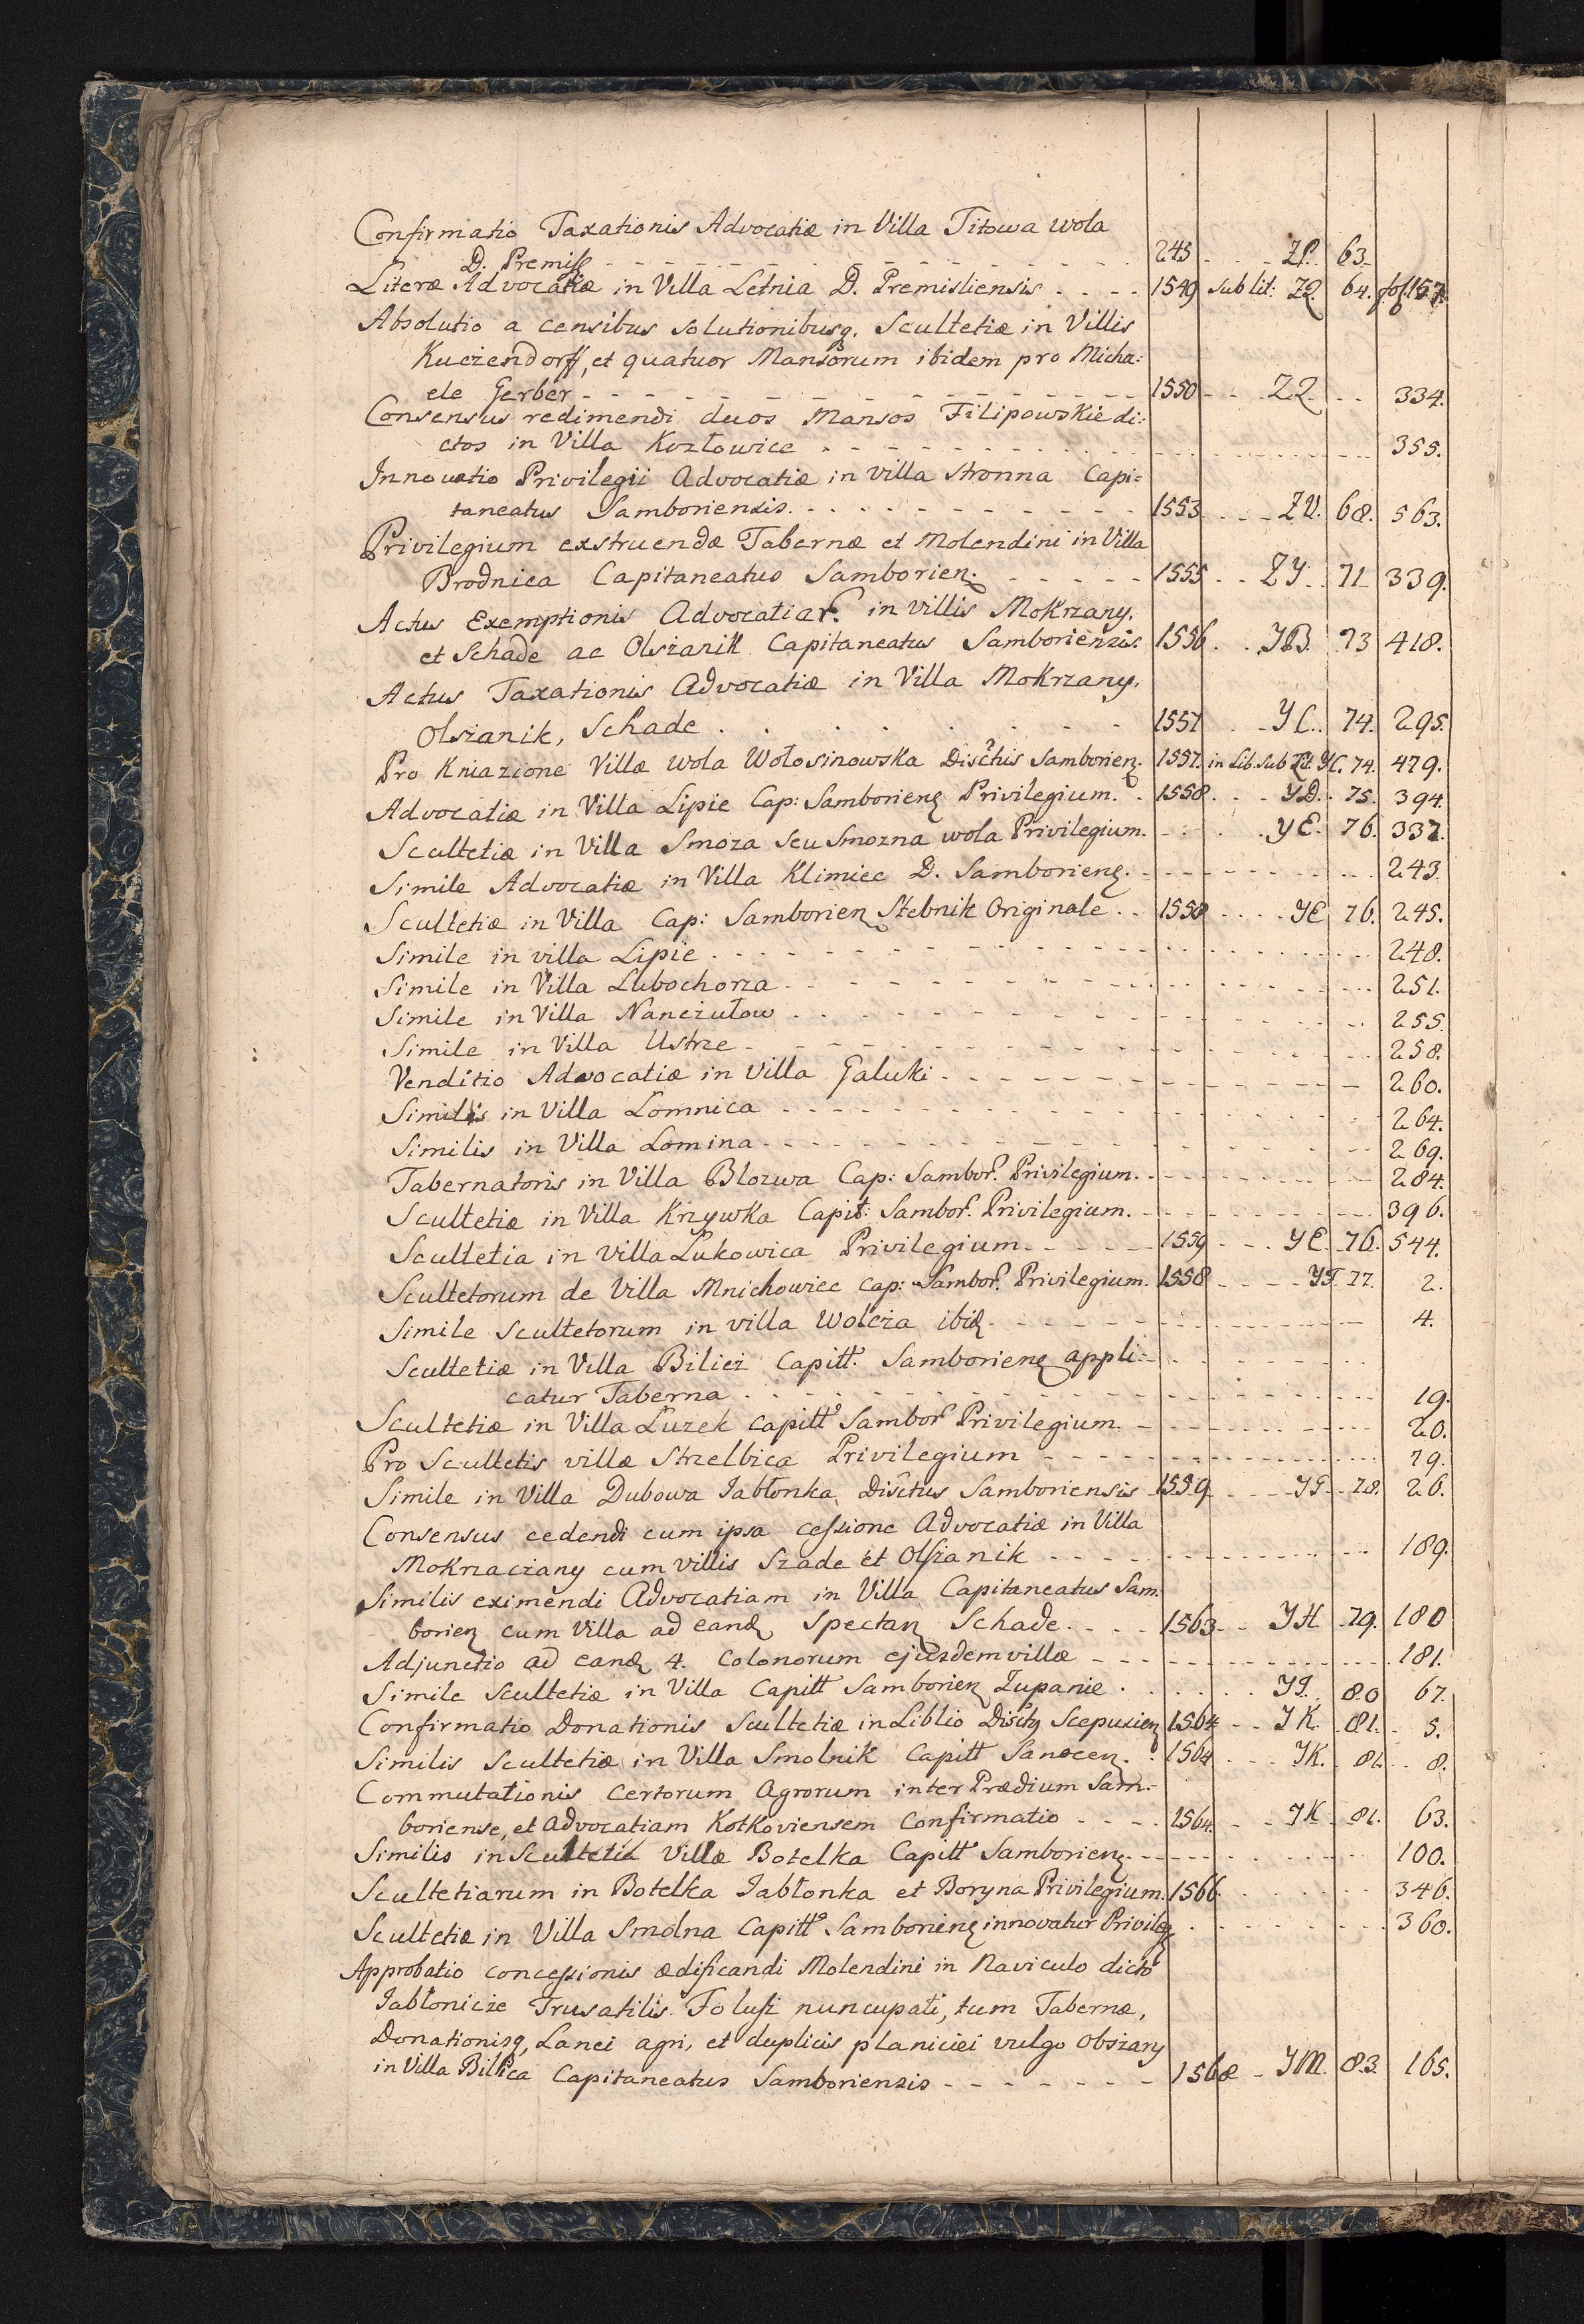 Confirmatio Taxationis Advocatiæ in Villa Titowa wola
D. Premisl - - - 243 - - ZP. 63.
Literæ Advocatiæ in Villa Letnia D. Premisliensis - - - 1549 sub lit: ZQ. 64. fol 157.
Absolutio a censibus solutionibusq. Scultetiæ in Villis
Kuczendorff, et quatuor Mansorum ibidem pro Micha:
ele Gerber - - - 1550 - - ZQ. - - 334.
Consensus redimendi duos Mansos Filipowskie di:
ctos in Villa Kozłowice - - - 355.
Innovatio Privilegii Advocatiæ in villa Stronna Capi=
taneatus Samboriensis. - - - 1553 - - ZV. 68. 563.
Privilegium exstruendæ Tabernæ et Molendini in Villa
Brodnica Capitaneatus Samborien. - - - 1555 - - ZY. 71 339.
Actus Exemptionis Advocatiar. in villis Mokrzany,
et Schade ac Olszanik Capitaneatus Samboriensis. 1556 - - YB. 73 418.
Actus Taxationis Advocatiæ in Villa Mokrzany,
Olszanik, Schade - - - 1557 - - YC. 74. 295.
Pro Kniazione Villæ Wola Wołosinowska Disctûs Samborien. 1557. in Lib. sub Lit. YC. 74. 479.
Advocatiæ in Villa Lipie Cap: Samborien Privilegium. - 1558. - - YD. 75. 394.
Scultetiæ in Villa Smoza seu Smozna wola Privilegium. - - - YE. 76. 337.
Simile Advocatiæ in Villa Klimiec D. Samborien. - - - 243.
Scultetiæ in Villa Cap: Samborien Stebnik Originale - - 1558 - - YE 76. 245.
Simile in villa Lipie - - - 248.
Simile in Villa Lubochorza - - - 251.
Simile in Villa Nanczułow - - - 255.
Simile in Villa Ustrze - - - 258.
Venditio Advocatiæ in Villa Galuki - - - 260.
Similis in Villa Lomnica - - - 264.
Similis in Villa Lomina - - - 269.
Tabernatoris in Villa Blozwa Cap: Sambor. Privilegium. - - - 284.
Scultetiæ in Villa Krzywka Capit: Sambor. Privilegium. - - - 396.
Scultetia in Villa Lukowica Privilegium - - - 1559 - - YE. 76. 544.
Scultetorum de Villa Mnichowiec Cap: Sambor. Privilegium. 1558 - - YF. 77. 2.
Simile Scultetorum in villa Wolcza ibid - - - 4.
Scultetiæ in Villa Bilicz Capitt. Samborien appli:
catur Taberna - - - 19.
Scultetiæ in Villa Luzek Capitt Sambor Privilegium. - - - 20.
Pro Scultetis villæ Strzelbica Privilegium - - - 79.
Simile in Villa Dubowa Jabłonka Disctus Samboriensis 1559 - - YG. 78. 26.
Consensus cedendi cum ipsa cessione Advocatiæ in Villa
Mokrzaczany cum villis Szade et Olszanik - - - 189.
Similis eximendi Advocatiam in Villa Capitaneatus Sam:
borien cum Villa ad eand spectan Schade - - - 1563 - - YH. 79. 180
Adjunctio ad eand 4. Colonorum ejusdem villæ - - - 181.
Simile Scultetiæ in Villa Capitt Samborien Zupanie - - - YI. 80 67.
Confirmatio Donationis Scultetiæ in Liblio Disctus Scepusien 1564 - - YK. 81. 5.
Similis Scultetiæ in Villa Smolnik Capitt Sanocen. - 1564 - - YK. 81. 8.
Commutationis Certorum Agrorum inter Prædium Sam:
boriense, et Advocatiam Kotkoviensem Confirmatio - - - 1564. - - YK 81. 63.
Similis in Scultetia Villæ Botelka Capitt Samborien - - - 100.
Scultetiarum in Botelka Jabłonka et Boryna Privilegium. 1566 - - - 346.
Scultetiæ in Villa Smolna Capitt Samborien innovatur Privileg - - - 360.
Approbatio concessionis ædificandi Molendini in Naviculo dicto
Jabłonicze Trusatilis Folusi nuncupati, tum Tabernæ,
Donationisq, Lanei agri, et duplicis planiciei vulgo Obszary
in Villa Bilica Capitaneatus Samboriensis - - - 1568 - YM. 83. 165.